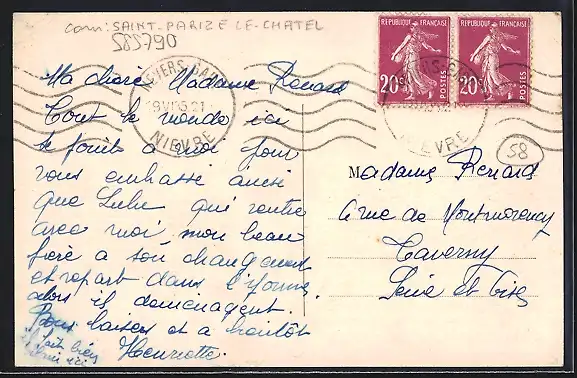 com: SAINT-PARIZE LE-CHATEL
585790
Ma chère Madame Renard
Tout le monde ici
se joint à moi pour
vous embrasser ainsi
que Lulu qui rentre
avec moi, mon beau
frère a son changement
et repart dans l'Yonne.
alors ils déménagent.
Bons baisers et à bientôt
Henriette.
fait bien
ici
NEVERS-GARE
NIEVRE
REPUBLIQUE FRANÇAISE
20c POSTES
REPUBLIQUE FRANÇAISE
20c POSTES
NIEVRE
58
Madame Renard
rue de Montmorency
Taverny
Seine et Oise